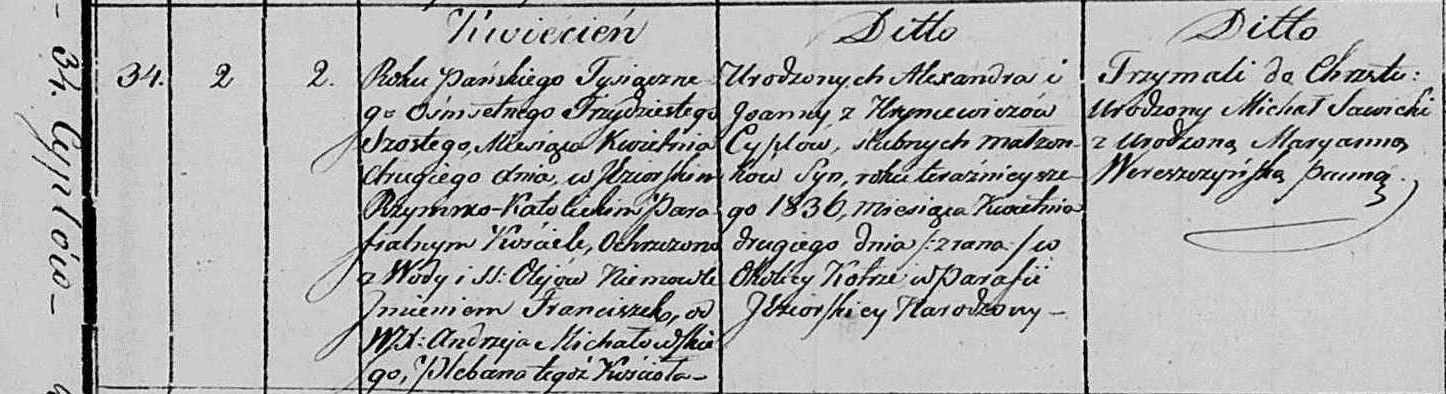 34. Cyplow-
Kwiecień
34.
2
2.
Roku Pańskiego Tysiączne-
go Ośmsetnego Trzydziestego
Szostego, Miesiąca Kwietnia
drugiego dnia, w Jeziorskim
Rzymsko-Katolickim Para
fialnym Kościele, Ochrzczono
z Wody i SS: Olejów Niemowle
Jmieniem Franciszek, od
WX: Andrzeja Michałowskie
go, Plebana tegoż Kościoła-
Ditto
Urodzonych Alexandra i
Joanny z Hryniewiczów
Cyplów, ślubnych małżon-
ków Syn, roku teraźnieysze-
go 1836, miesiąca Kwietnia
drugiego dnia /: zrana :/ w
Okolicy Kotrze w Parafii
Jeziorskiey Narodzony-
Ditto
Trzymali do Chrztu:
Urodzony Michał Sawicki
z Urodzoną Maryanną
Wereszczyńską panną.